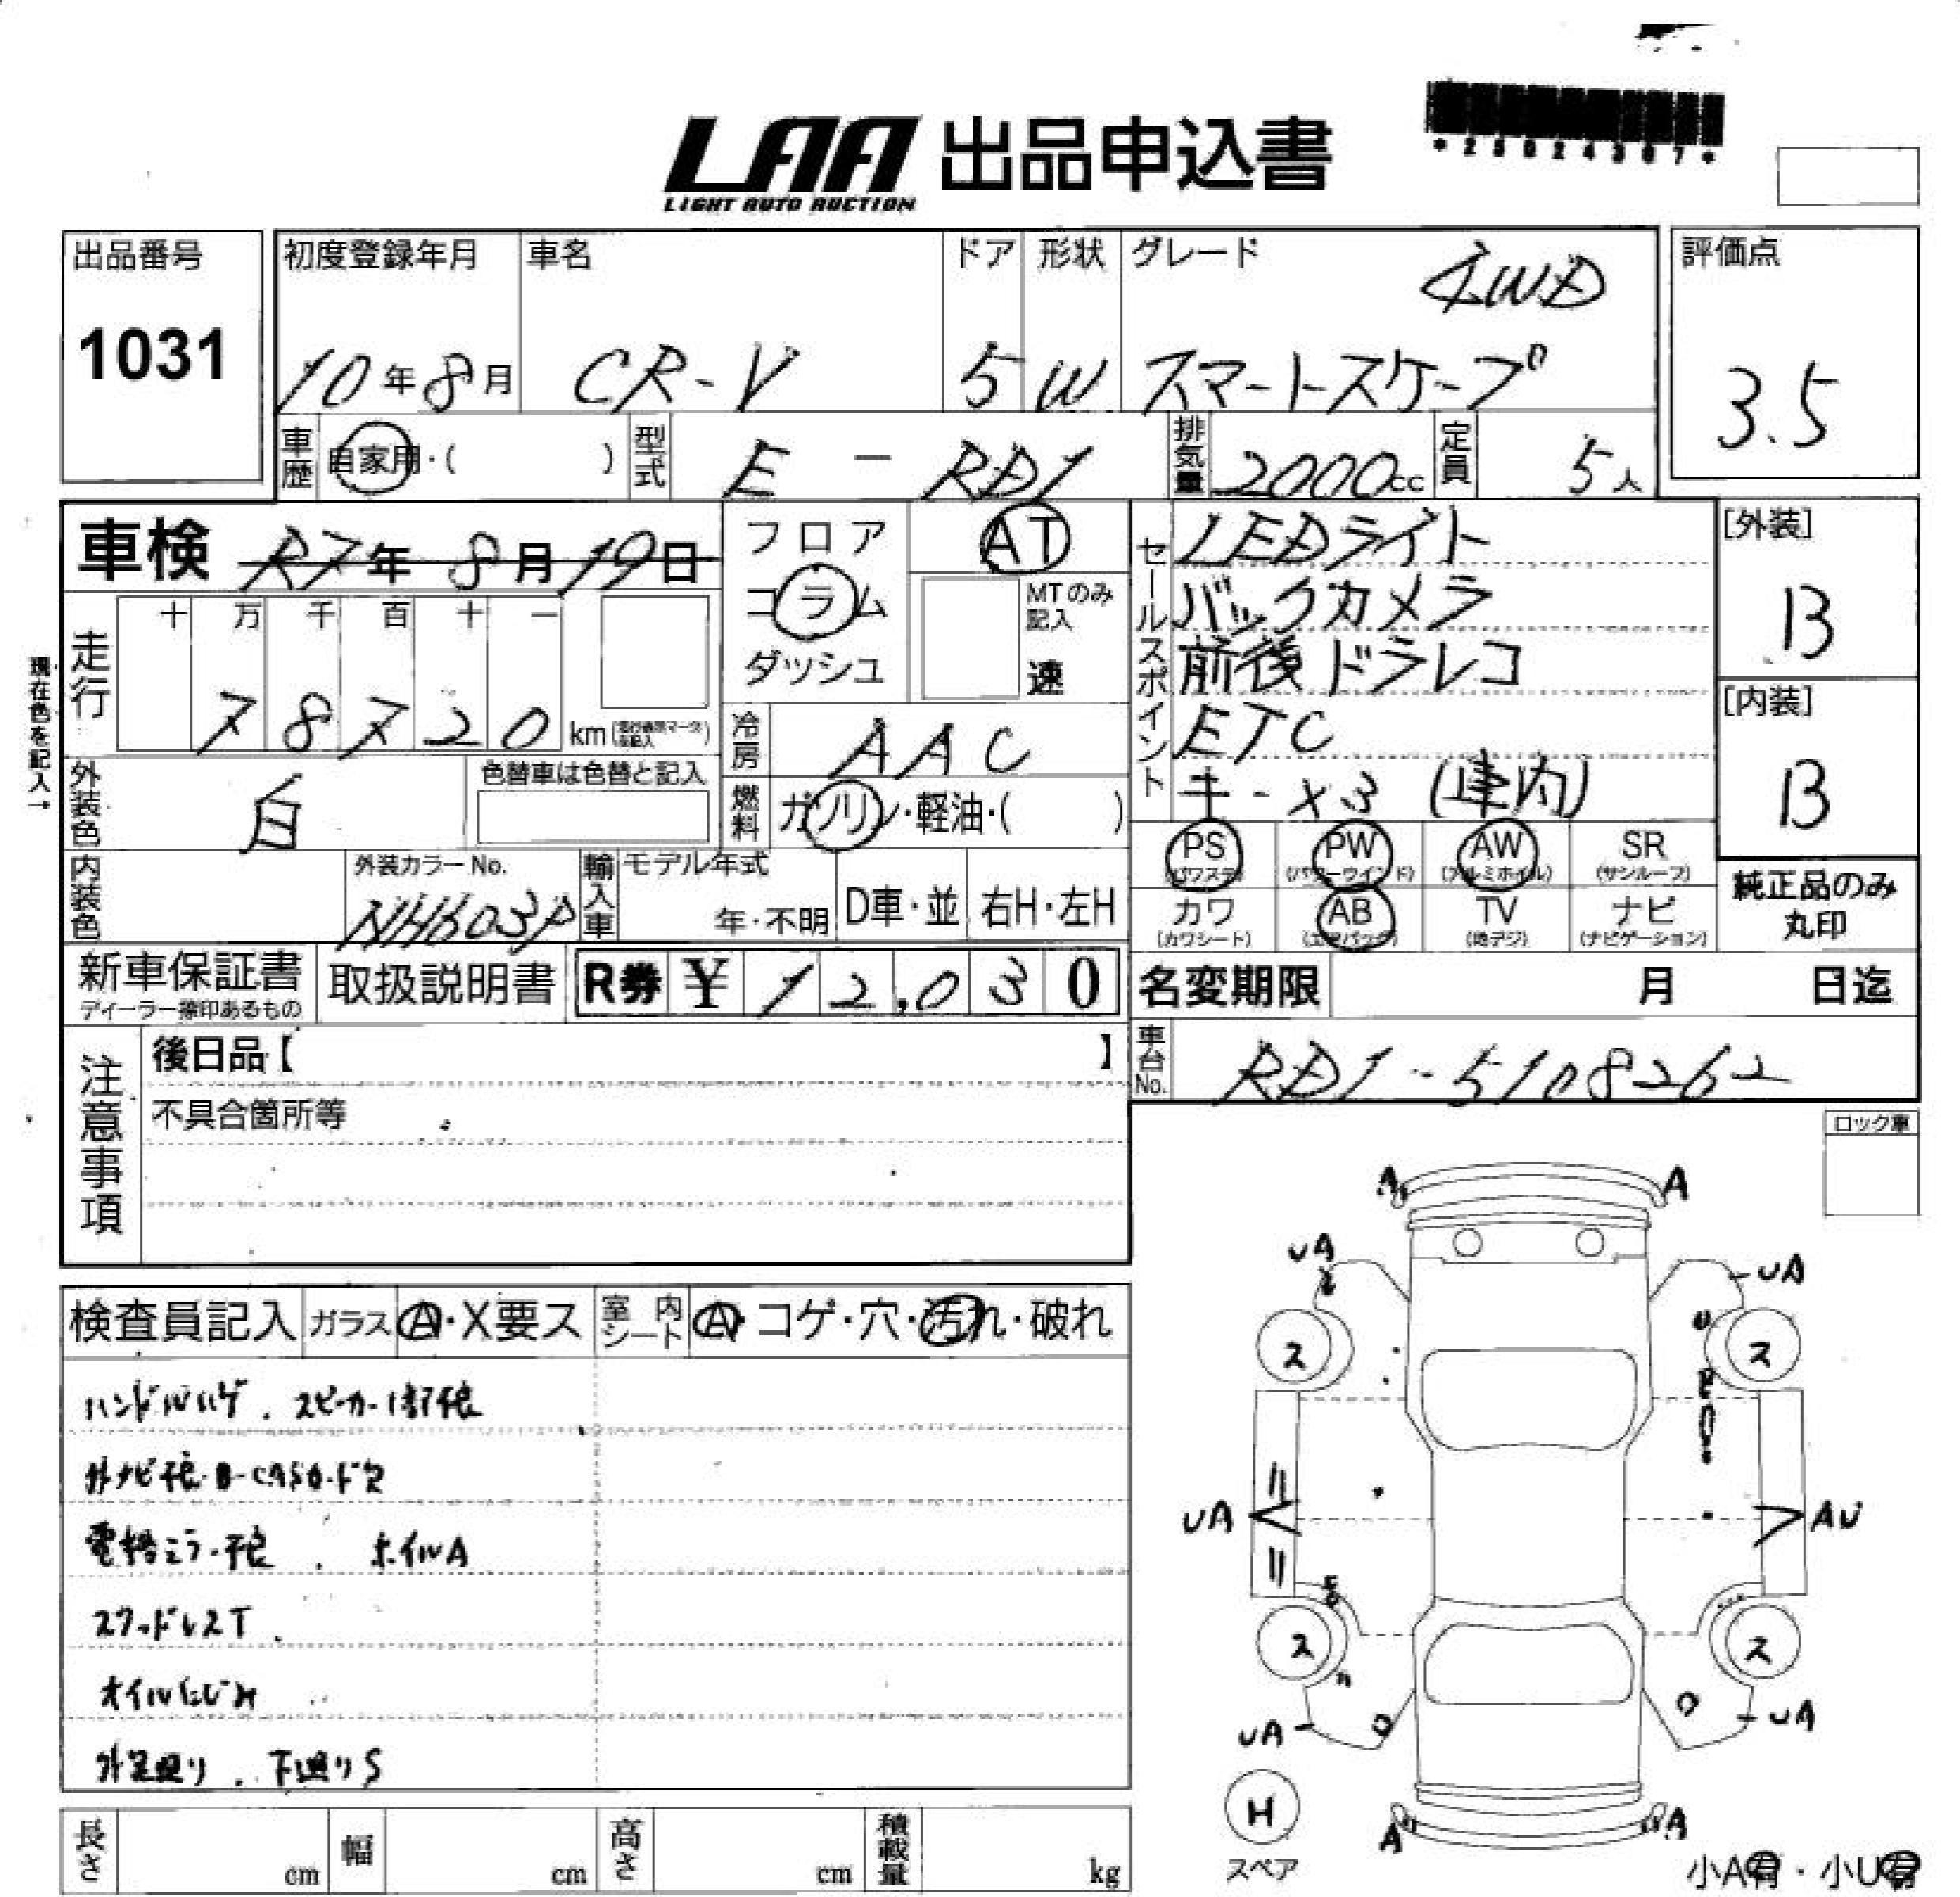 LAA 出品申込書
LIGHT AUTO AUCTION
*25024367*
出品番号
1031
初度登録年月
10年8月
車名
CR-V
ドア
5
形状
W
グレード
4WD
スマートスケープ
評価点
3.5
車歴
自家用・( )
型式
E - RD1
排気量
2000cc
定員
5人
車検 R7年8月19日
フロア
コラム
ダッシュ
AT
MTのみ記入
速
セールスポイント
LEDライト
バックカメラ
前後ドラレコ
ETC
キー×3 (車内)
[外装]
B
[内装]
B
現在色を記入→
走行
十 万 千 百 十 一
78720 km
冷房
AAC
外装色
白
色替車は色替と記入
燃料
ガソリン・軽油・( )
PS (パワステ)
PW (パワーウインド)
AW (アルミホイル)
SR (サンルーフ)
カワ (カワシート)
AB (エアバック)
TV (地デジ)
ナビ (ナビゲーション)
純正品のみ
丸印
内装色
外装カラーNo.
NH603P
輸入車
モデル年式
年・不明
D車・並
右H・左H
新車保証書
ディーラー捺印あるもの
取扱説明書
R券 ¥ 12,030
名変期限 月 日迄
注意事項
後日品【 】
不具合箇所等
車台No.
RD1-5108262
ロック車
検査員記入
ガラス
A・X要ス
室内シート
A・コゲ・穴・汚れ・破れ
ハンドルハゲ . スピーカー1部不良
外ナビ不良・B-CASカード欠
電格ミラー不良 . ホイルA
スタッドレスT.
オイルにじみ
外足廻り . 下廻りS
A A
UA UA
ス ス
UA AU
ス ス
UA UA
H
スペア
A A
小A有・小U有
長さ cm
幅 cm
高さ cm
積載量 kg